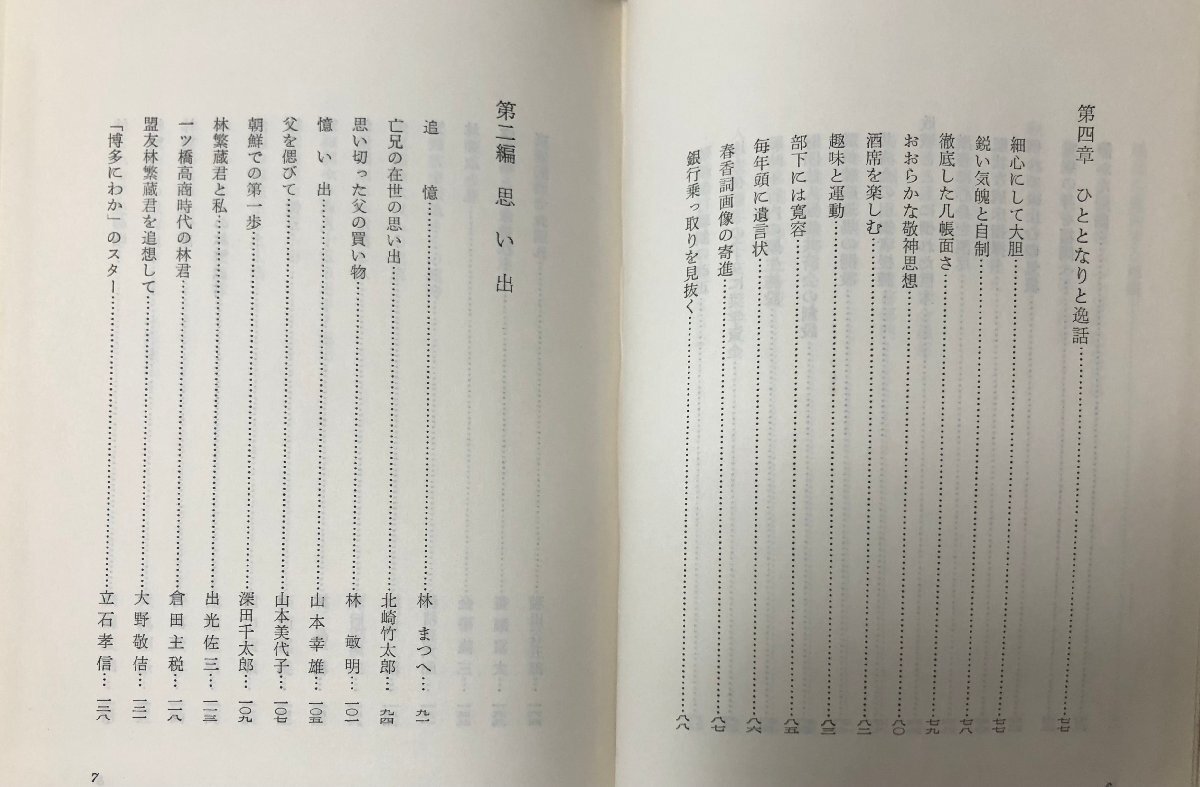 第四章　ひととなりと逸話……七七
細心にして大胆……七七
鋭い気魄と自制……七八
徹底した几帳面さ……七九
おおらかな敬神思想……八〇
酒席を楽しむ……八二
趣味と運動……八三
部下には寛容……八五
毎年頭に遺言状……八六
春香詞画像の寄進……八七
銀行乗っ取りを見抜く……八八
第二編　思い出
追憶……林　まつへ…九一
亡兄の在世の思い出……北崎竹太郎…九四
思い切った父の買い物……林　敏明…一〇一
憶い出……山本幸雄…一〇五
父を偲びて……山本美代子…一〇七
朝鮮での第一歩……深田千太郎…一〇九
林繁蔵君と私……出光佐三…一一三
一ツ橋高商時代の林君……倉田主税…一一八
盟友林繁蔵君を追想して……大野敬佶…一三一
「博多にわか」のスター……立石孝信…一三八
7